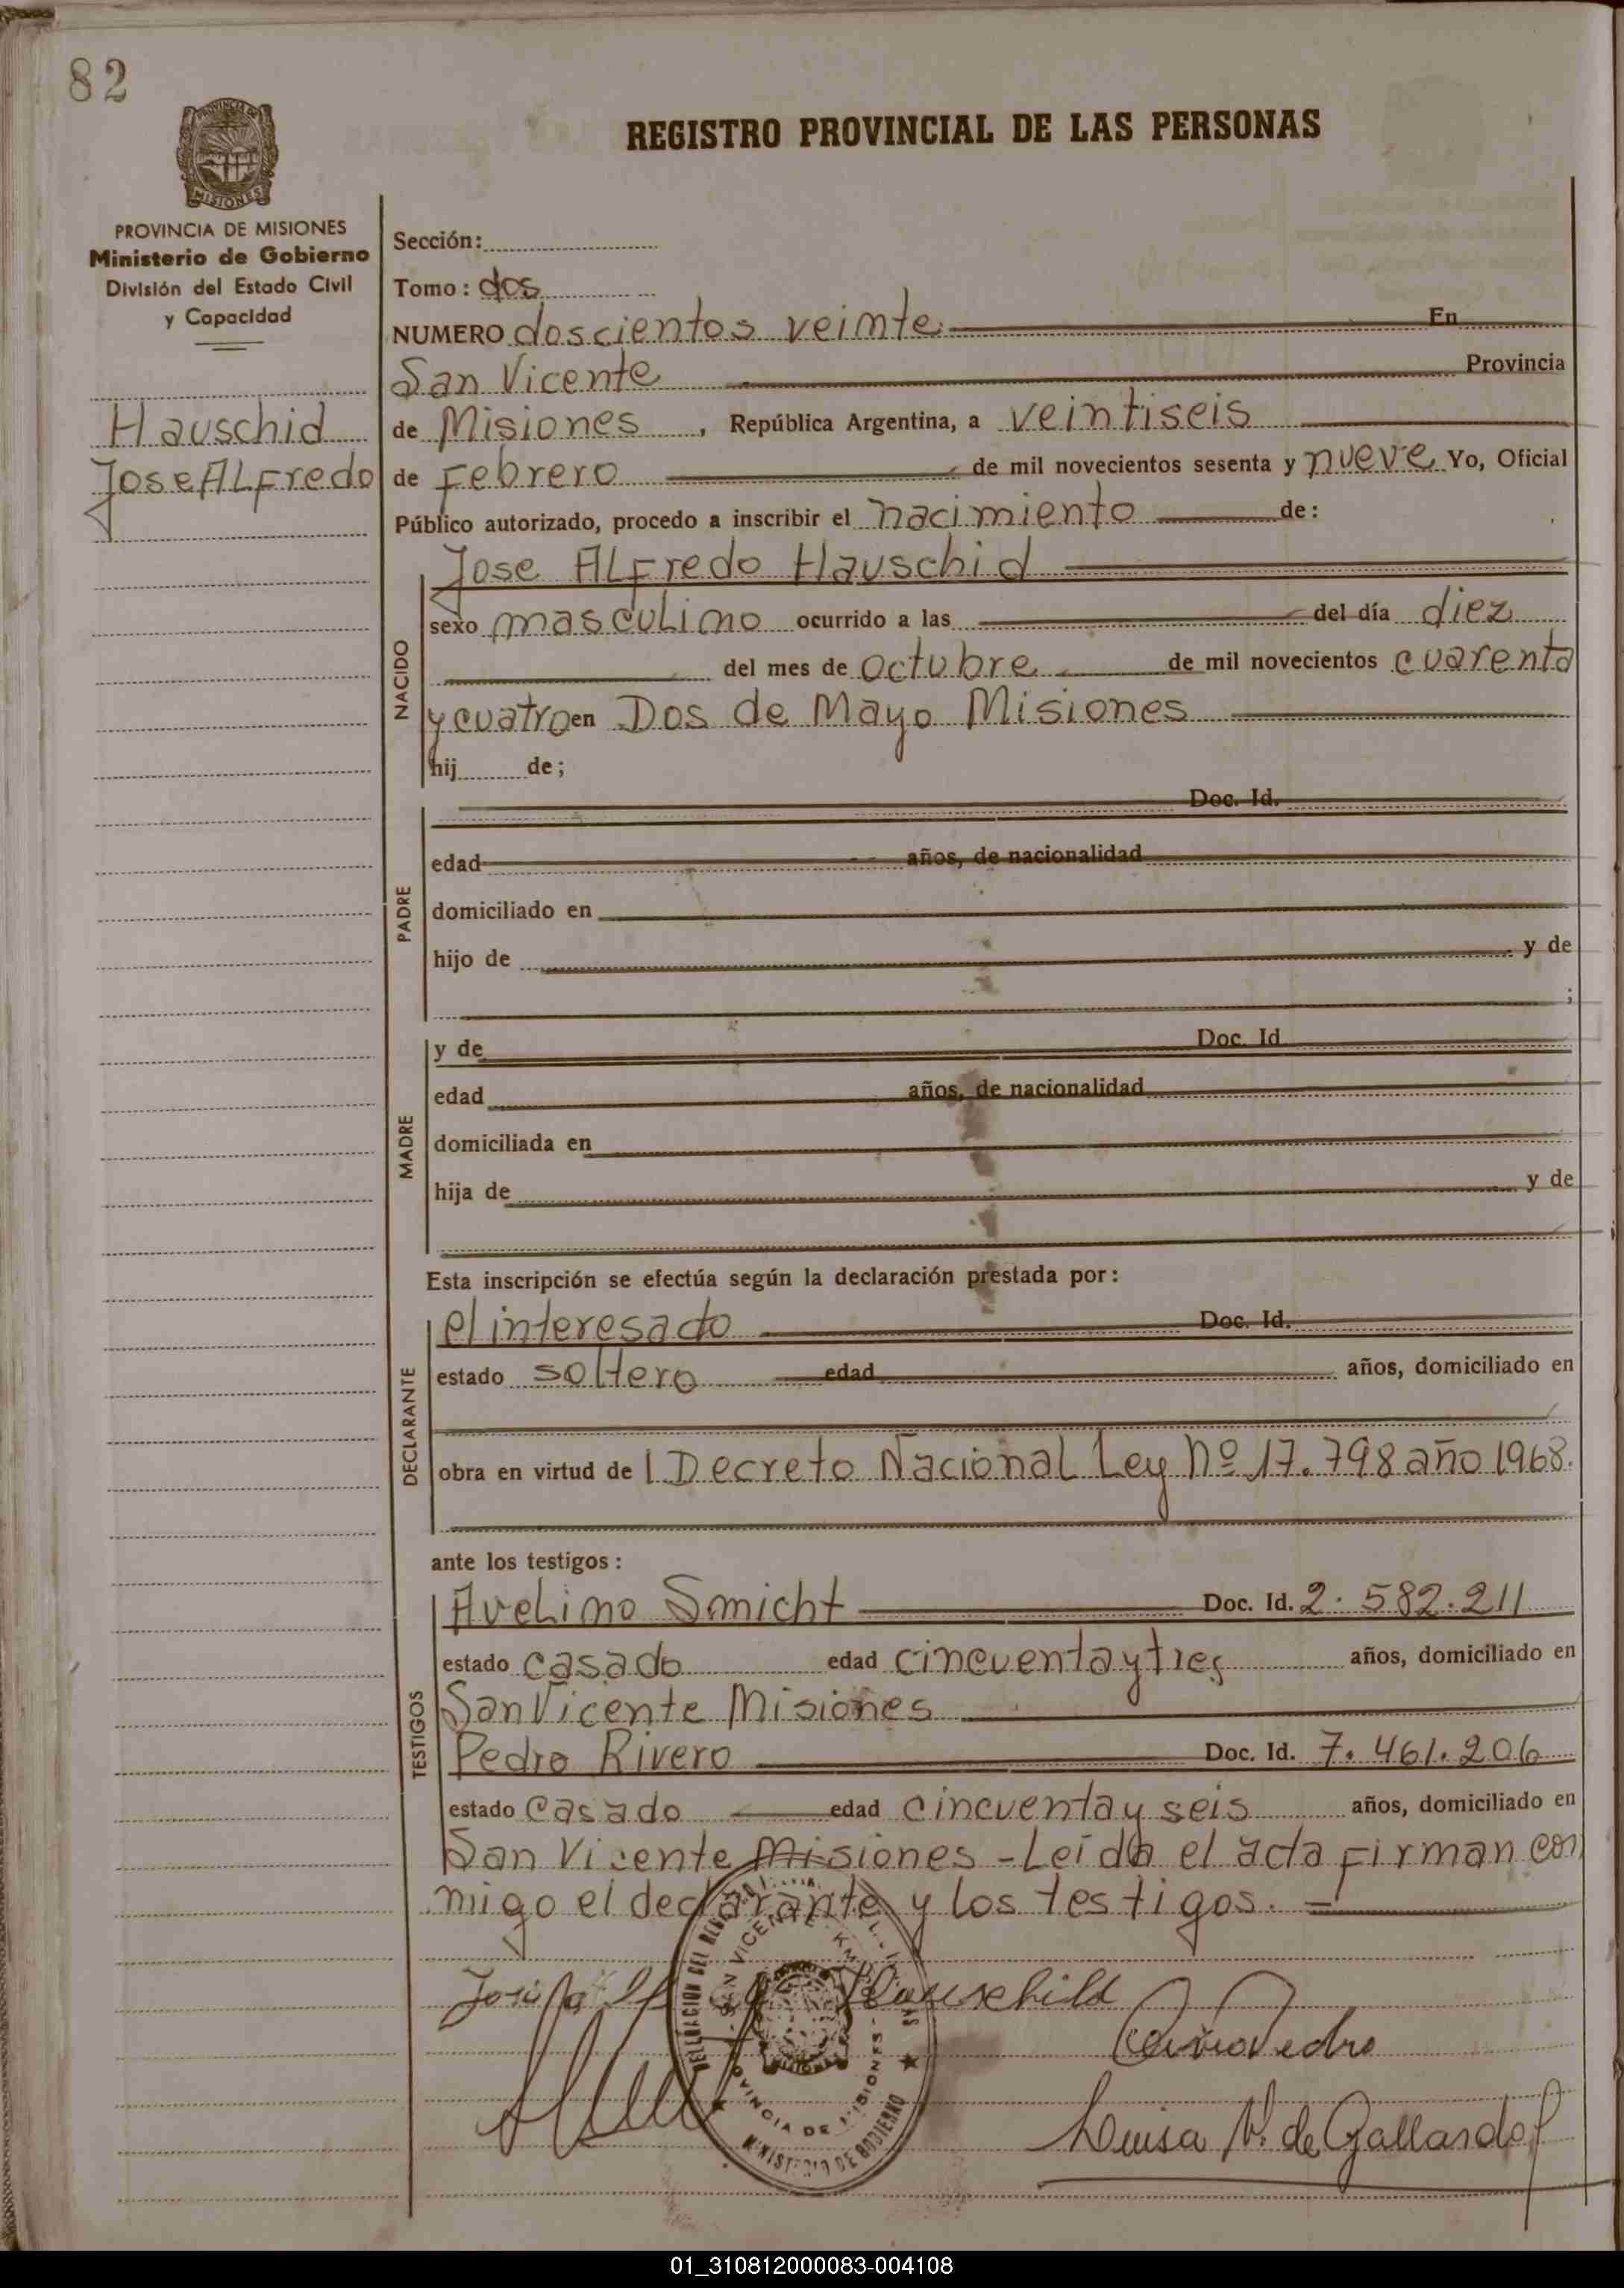 82
PROVINCIA DE
MISIONES
REGISTRO PROVINCIAL DE LAS PERSONAS
PROVINCIA DE MISIONES
Ministerio de Gobierno
División del Estado Civil
y Capacidad
Hauschid
Jose ALFredo
Sección:
Tomo: dos
NUMERO doscientos veinte En
San Vicente Provincia
de Misiones, República Argentina, a veintiseis
de Febrero de mil novecientos sesenta y nueve Yo, Oficial
Público autorizado, procedo a inscribir el nacimiento de:
NACIDO
Jose ALFredo Hauschid
sexo masculino ocurrido a las del día diez
del mes de octubre de mil novecientos cuarenta
y cuatro en Dos de Mayo Misiones
hij de;
PADRE
Doc. Id.
edad años, de nacionalidad
domiciliado en
hijo de y de
;
MADRE
y de Doc. Id
edad años, de nacionalidad
domiciliada en
hija de y de
Esta inscripción se efectúa según la declaración prestada por:
DECLARANTE
el interesado Doc. Id.
estado soltero edad años, domiciliado en
obra en virtud de l Decreto Nacional Ley Nº 17.798 año 1968.
ante los testigos:
TESTIGOS
Avelino Smicht Doc. Id. 2.582.211
estado casado edad cincuenta y tres años, domiciliado en
San Vicente Misiones
Pedro Rivero Doc. Id. 7.461.206
estado casado edad cincuenta y seis años, domiciliado en
San Vicente Misiones - Leída el acta Firman con
migo el declarante y los testigos. =
Hauschild
Pedro
Luisa V. de Gallardo
PROVINCIA DE MISIONES
MINISTERIO DE GOBIERNO
01_310812000083-004108